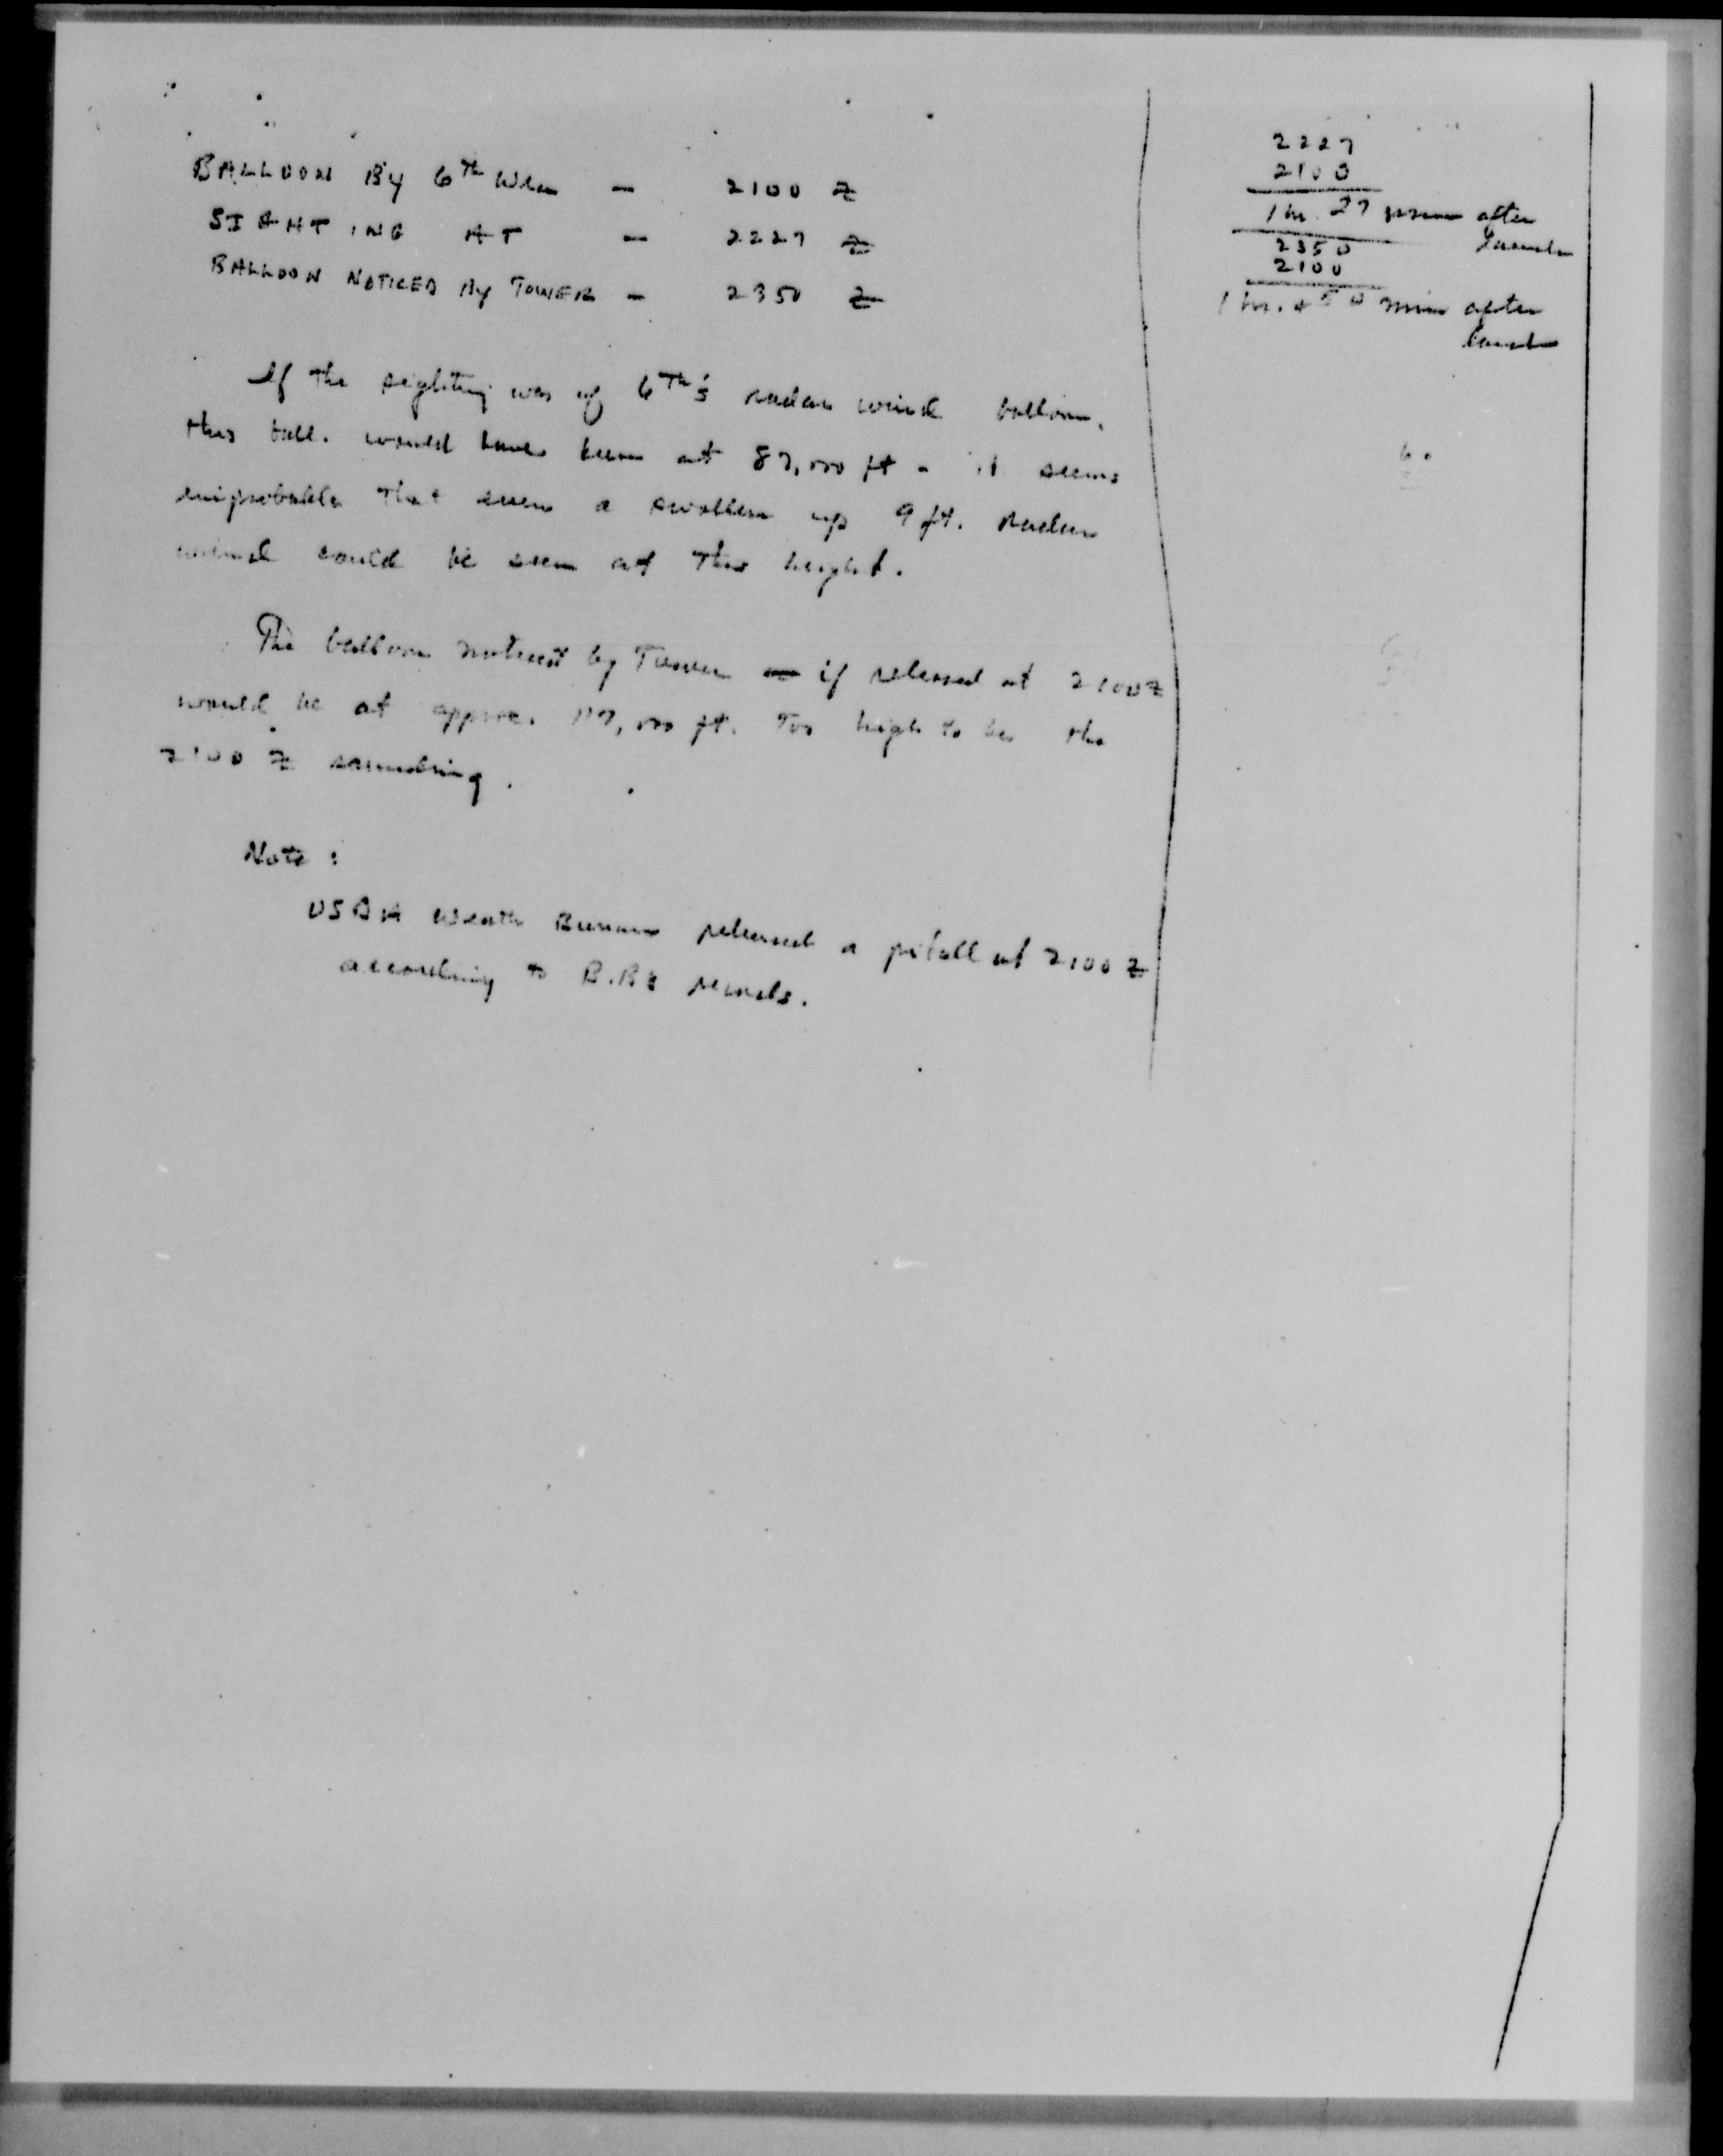 BALLOON By 6th Wea – 2100 Z
SIGHTING AT – 2227 Z
BALLOON NOTICED By TOWER – 2350 Z
2227
2100
1 hr. 27 min after
launch
2350
2100
1 hr. + 50 min after
launch
If the sighting was of 6Th's radar wind balloon,
this ball. would have been at 87,000 ft - it seems
improbable that even a swollen up 9 ft. radar
wind could be seen at this height.
The balloon noticed by Tower – if released at 2100Z
would be at approx. 117,000 ft. Too high to be the
2100 Z sounding.
Note :
Weath Bureau released a piball at 2100 Z
according to B.B's records.